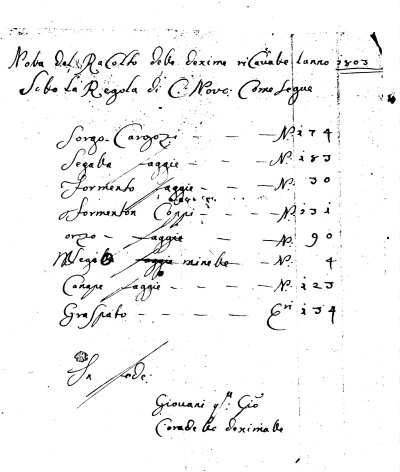 Nota del Racolto delle dexime ricavate lanno 1803
Soto la Regola di C. Novo: Come Segue
Sorgo - Cargozi - - - N. 174
Segalla faggie - - - N. 183
Formento faggie - - - N. 30
Formenton Coppi - - N. 31
orzo - faggie - - N. 90
Segala minelle - N. 4
Canape faggie - - - - N. 123
Graspato - - - - - Eri 134
In fede:
Giovani qm: Gio
Corade